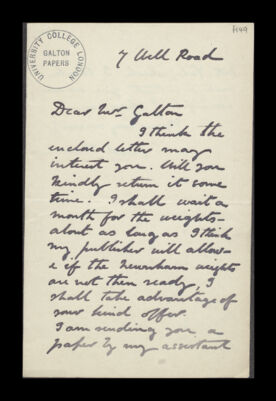 UNIVERSITY COLLEGE LONDON
GALTON
PAPERS
7 Well Road
Dear Mr. Galton
I think the
enclosed letter may
interest you. Will you
kindly return it some
time. I shall wait a
month for the weights -
about as long as I think
my publisher will allow -
& if the Newnham weights
are not then ready, I
shall take advantage of
your kind offer.
I am sending you a
paper by my assistant